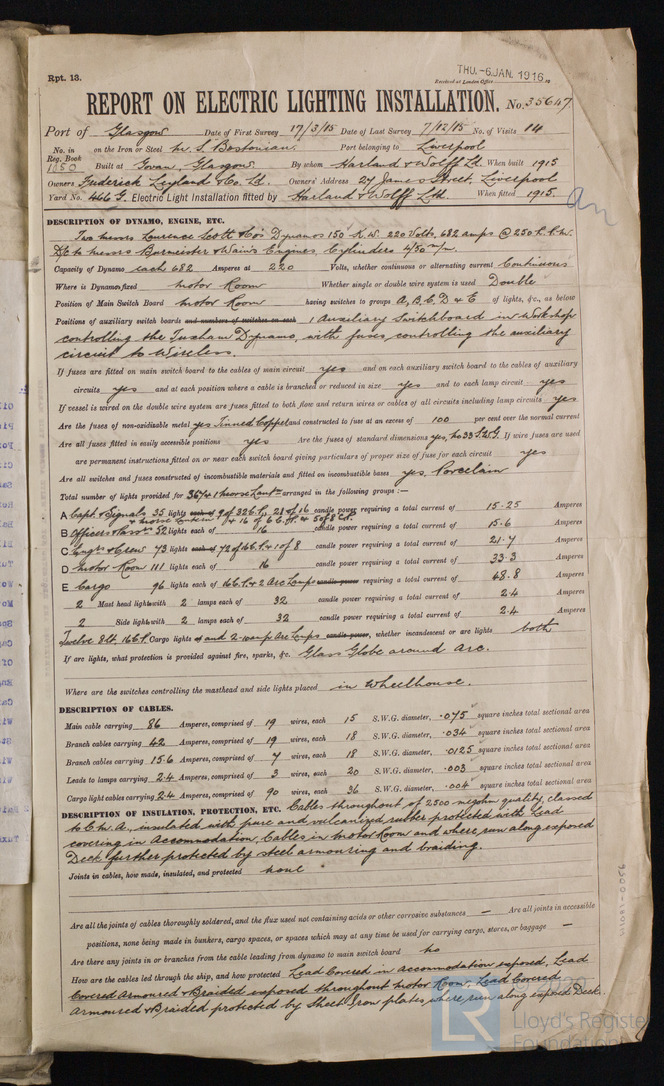 Rpt. 13.
THU. -6 JAN. 1916
Received at London Office
REPORT ON ELECTRIC LIGHTING INSTALLATION. No. 35647
Port of Glasgow Date of First Survey 17/3/15 Date of Last Survey 7/12/15 No. of Visits 14
No. in Reg. Book 1250 on the Iron or Steel M.S. "Bostonian. Port belonging to Liverpool
Built at Govan, Glasgow By whom Harland & Wolff Ld. When built 1915
Owners Frederick Leyland & Co. Ld. Owners' Address 27 James Street, Liverpool
Yard No. 466 G. Electric Light Installation fitted by Harland & Wolff Ltd. When fitted 1915.
DESCRIPTION OF DYNAMO, ENGINE, ETC.
Two Messrs Laurence Scott & Co's Dynamos 150 K.W. 220 Volts, 682 amps @ 250 R.P.M.
D/C to Messrs Burmeister & Wain's Engines, Cylinders 4/50 m/m.
Capacity of Dynamo each 682 Amperes at 220 Volts, whether continuous or alternating current Continuous
Where is Dynamo fixed Motor Room Whether single or double wire system is used Double
Position of Main Switch Board Motor Room having switches to groups A, B, C, D & E of lights, &c., as below
Positions of auxiliary switch boards and numbers of switches on each 1 Auxiliary Switchboard in Workshop
controlling the Tuxham Dynamo, with fuses, controlling the auxiliary
circuit to Wireless.
If fuses are fitted on main switch board to the cables of main circuit yes and on each auxiliary switch board to the cables of auxiliary
circuits yes and at each position where a cable is branched or reduced in size yes and to each lamp circuit yes
If vessel is wired on the double wire system are fuses fitted to both flow and return wires or cables of all circuits including lamp circuits yes
Are the fuses of non-oxidizable metal yes Tinned Copper and constructed to fuse at an excess of 100 per cent over the normal current
Are all fuses fitted in easily accessible positions yes Are the fuses of standard dimensions yes, No 33 S.W.G. If wire fuses are used
are permanent instructions fitted on or near each switch board giving particulars of proper size of fuse for each circuit yes
Are all switches and fuses constructed of incombustible materials and fitted on incombustible bases yes, Porcelain
Total number of lights provided for 367 & 1 morse Lant. arranged in the following groups :—
A Capt. & Signals 35 lights each of 9 of 32 C.P., 21 of 16 candle power requiring a total current of 15.25 Amperes
& morse Lantern & 16 of 6 C.P. & 5 of 8 C.P.
B Officers & Passrs 52 lights each of 16 candle power requiring a total current of 15.6 Amperes
C Engrs. & Crew 73 lights each of 72 of 16 C.P. & 1 of 8 candle power requiring a total current of 21.7 Amperes
D Motor Room 111 lights each of 16 candle power requiring a total current of 33.3 Amperes
E Cargo 96 lights each of 16 C.P. & 2 Arc Lamps candle power requiring a total current of 48.8 Amperes
2 Mast head light with 2 lamps each of 32 candle power requiring a total current of 2.4 Amperes
2 Side light with 2 lamps each of 32 candle power requiring a total current of 2.4 Amperes
Twelve 8 lt. 16 C.P. Cargo lights of and 2-10 amp Arc Lamps candle power, whether incandescent or arc lights both
If arc lights, what protection is provided against fire, sparks, &c. Glass Globe around Arc.
Where are the switches controlling the masthead and side lights placed in Wheelhouse.
DESCRIPTION OF CABLES.
Main cable carrying 86 Amperes, comprised of 19 wires, each 15 S.W.G. diameter, .075 square inches total sectional area
Branch cables carrying 42 Amperes, comprised of 19 wires, each 18 S.W.G. diameter, .034 square inches total sectional area
Branch cables carrying 15.6 Amperes, comprised of 7 wires, each 18 S.W.G. diameter, .0125 square inches total sectional area
Leads to lamps carrying 2.4 Amperes, comprised of 3 wires, each 20 S.W.G. diameter, .003 square inches total sectional area
Cargo light cables carrying 2.4 Amperes, comprised of 90 wires, each 36 S.W.G. diameter, .004 square inches total sectional area
DESCRIPTION OF INSULATION, PROTECTION, ETC. Cables throughout of 2500 megohm quality, classed
to C.M.A., insulated with pure and vulcanized rubber protected with Lead
covering in Accommodation, Cables in Motor Room and where run along exposed
Deck further protected by steel armouring and braiding.
Joints in cables, how made, insulated, and protected none
Are all the joints of cables thoroughly soldered, and the flux used not containing acids or other corrosive substances — Are all joints in accessible
positions, none being made in bunkers, cargo spaces, or spaces which may at any time be used for carrying cargo, stores, or baggage —
Are there any joints in or branches from the cable leading from dynamo to main switch board no
How are the cables led through the ship, and how protected Lead Covered in accommodation exposed, Lead
Covered Armoured & Braided exposed throughout Motor Room, Lead Covered
Armoured & Braided protected by Sheet Iron plates where run along exposed Deck.
© 2020
LR
Lloyd's Register
Foundation